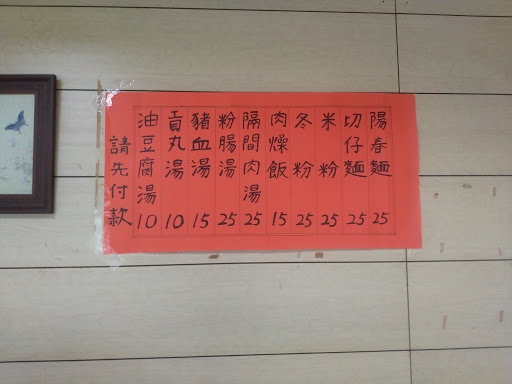 陽春麵 25
切仔麵 25
米粉 25
冬粉 25
肉燥飯 15
隔間肉湯 25
粉腸湯 25
豬血湯 15
貢丸湯 10
油豆腐湯 10
請先付款